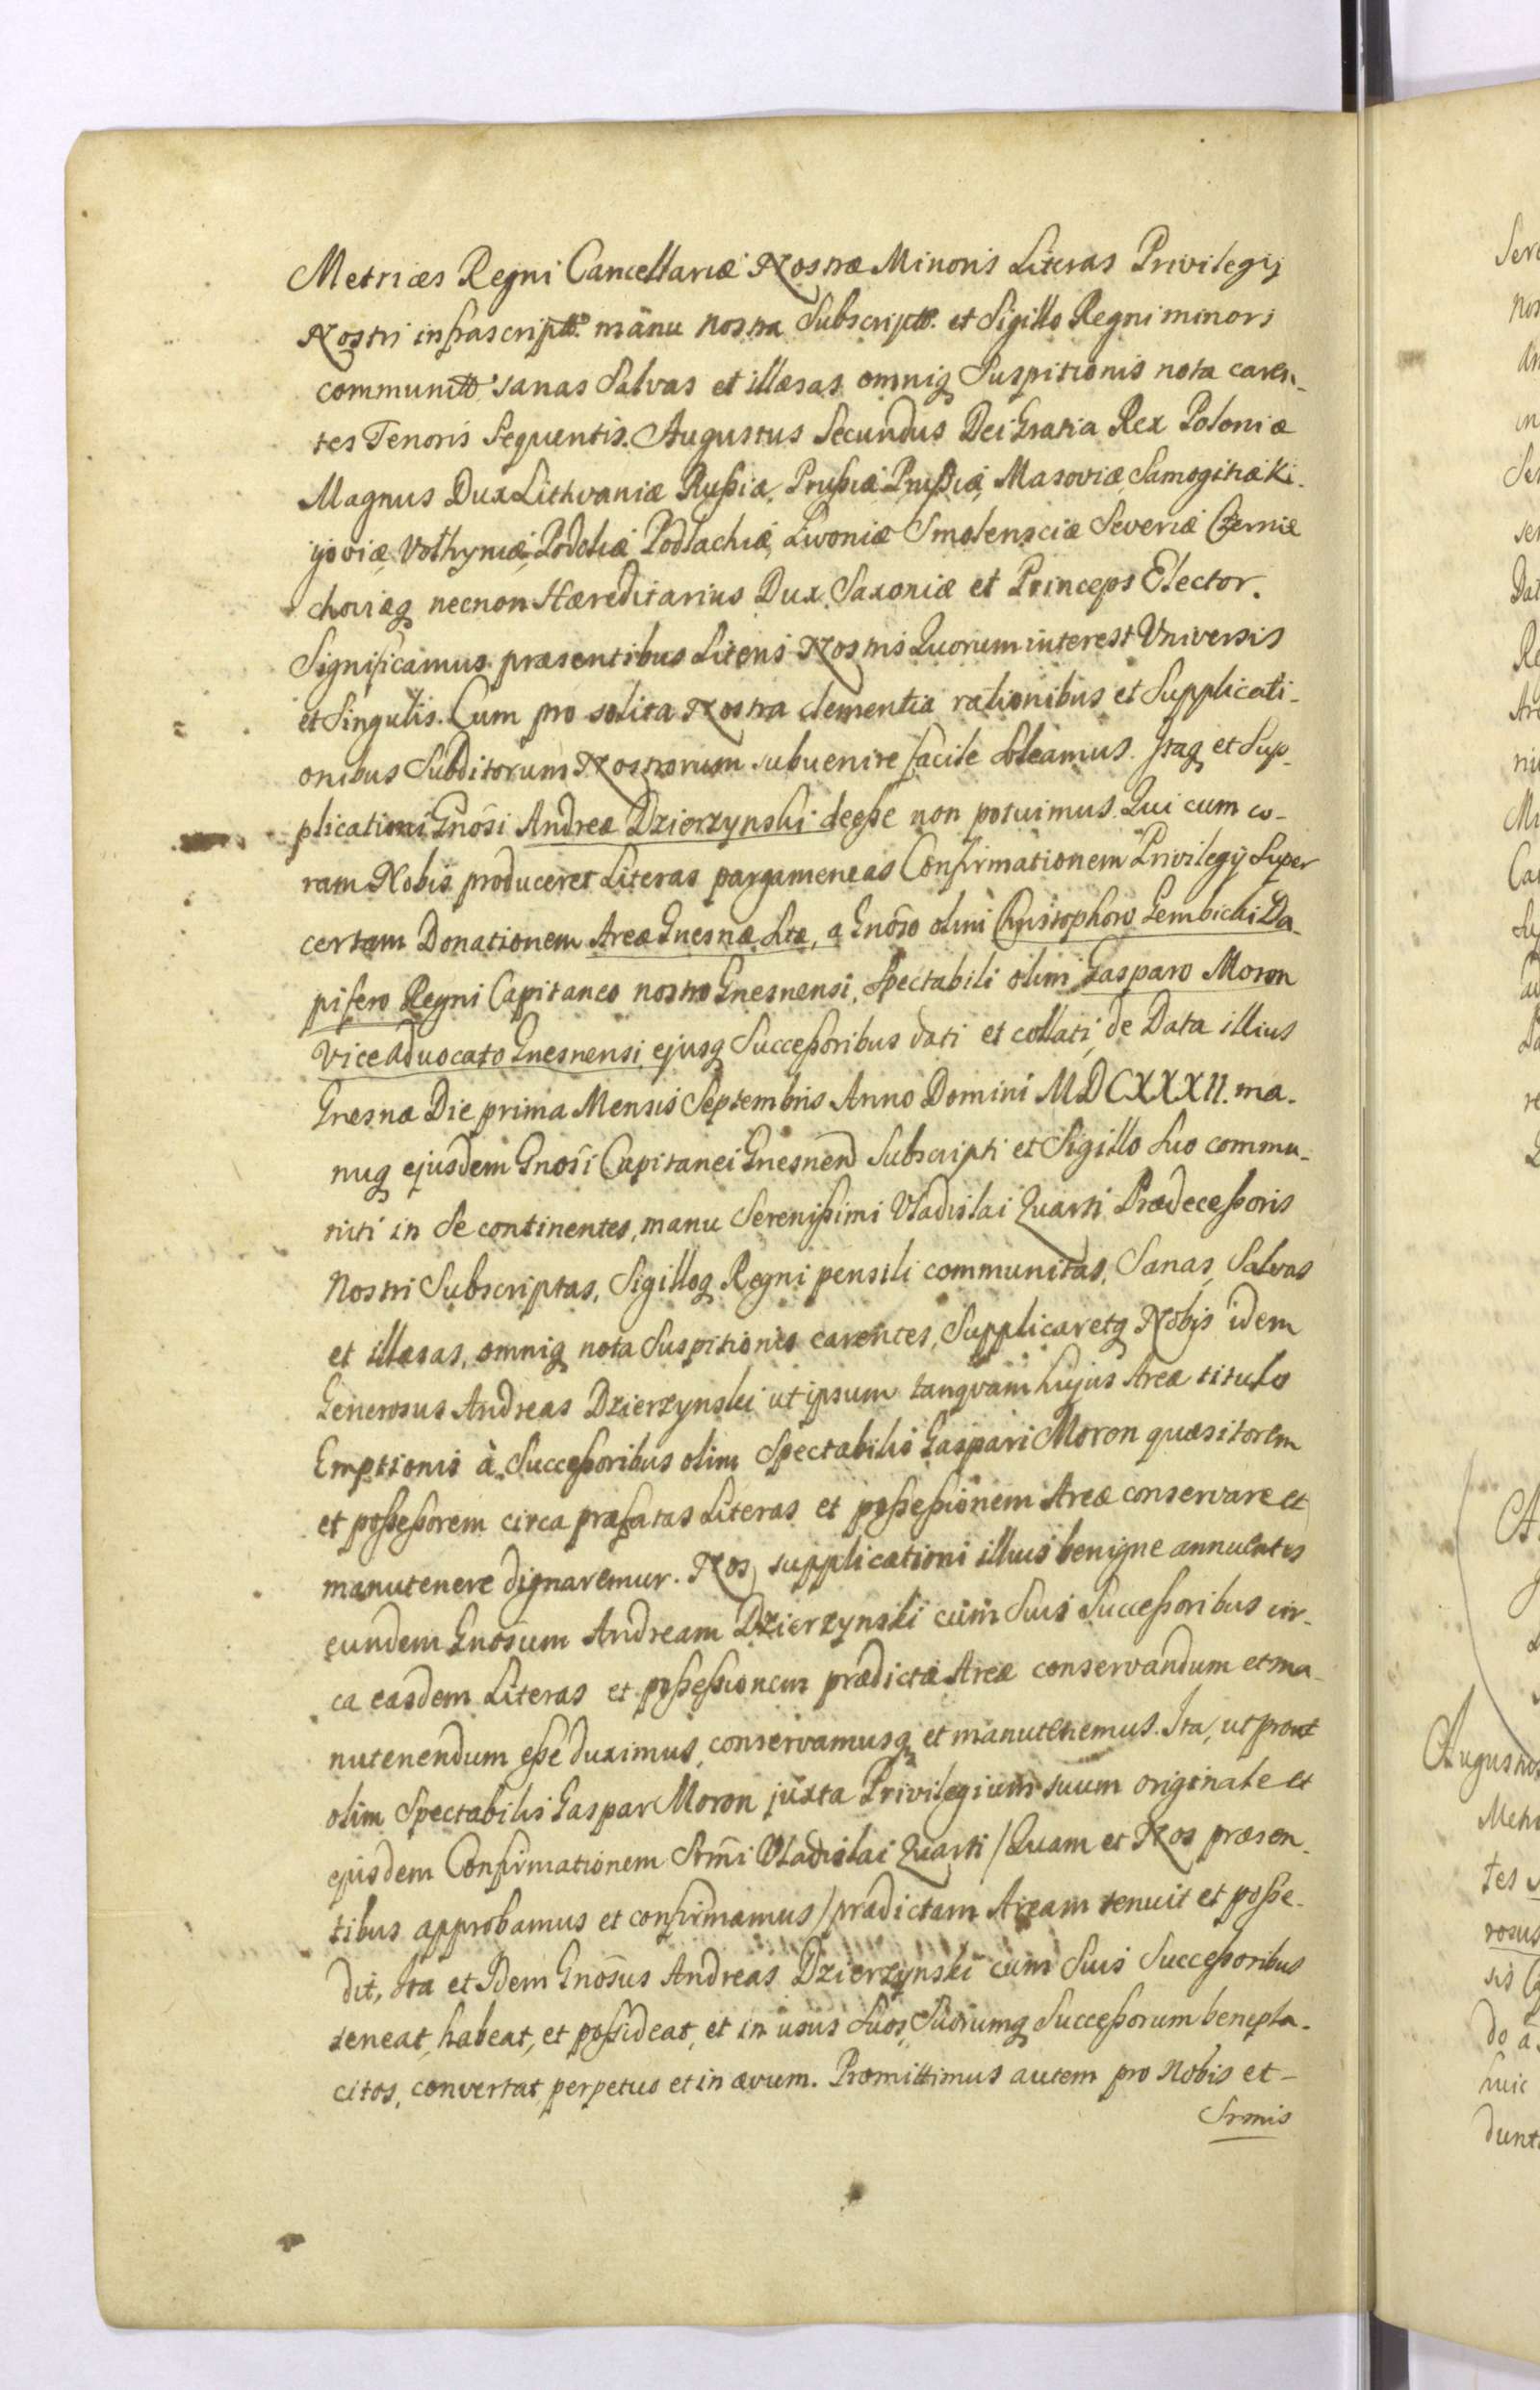 Metrices Regni Cancellariæ Nostræ Minoris Literas Privilegij
Nostri infrascriptt. manu nostra Subscriptt. et Sigillo Regni minori
communitt. sanas Salvas et illæsas omniq Suspitionis nota caren-
tes Tenoris Sequentis. Augustus Secundus Dei Gratia Rex Poloniæ
Magnus Dux Lithvaniæ Rußiæ, Prußiæ Prußiæ, Masoviæ, Samogitiæ Ki-
ijoviæ, Volhyniæ, Podoliæ Podlachiæ, Livoniæ Smolensciæ Severiæ Czernie
choviæq necnon Hæreditarius Dux Saxoniæ et Princeps Elector.
Significamus præsentibus Literis Nostris Quorum interest Vniversis
et Singulis. Cum pro solita Nostra clementia rationibus et Supplicati-
onibus Subditorum Nostrorum subuenire facile soleamus. Itaq et Sup-
plicationi Gnosi Andreæ Dzierzynski deeße non potuimus. Qui cum co-
ram Nobis produceret Literas pargameneas Confirmationem Privilegij Super
certam Donationem Areæ Gnesnæ Sitæ, a Gnoso olim Christophoro Gembicki Da-
pifero Regni Capitaneo nostro Gnesnensi, Spectabili olim Gasparo Moron
Viceaduocato Gnesnensi, ejusq Succeßoribus dati et collati, de Data illius
Gnesnæ Die prima Mensis Septembris Anno Domini MDCXXXII. ma-
nuq ejusdem Gnosi Capitanei Gnesnen Subscripti et Sigillo Suo commu-
niti in Se continentes, manu Serenißimi Vladislai Quarti Prædeceßoris
Nostri Subscriptas, Sigilloq Regni pensili communitas, Sanas, Salvas
et illæsas, omniq nota Suspitionis carentes, Supplicaretq Nobis idem
Generosus Andreas Dzierzynski ut ipsum tanqvam hujus Areæ titulo
Emptionis à Succeßoribus olim Spectabilis Gaspari Moron quæsitorem
et poßeßorem circa præfatas Literas et poßeßionem Areæ conservare et
manutenere dignaremur. Nos supplicationi illius benigne annuentes
eundem Gnosum Andream Dzierzynski cum Suis Succeßoribus cir-
ca easdem Literas et poßeßionem prædictæ Areæ conservandum et ma-
nutenendum eße duximus, conservamusq et manutenemus. Ita, ut prout
olim Spectabilis Gaspar Moron juxta Privilegium suum originale et
ejusdem Confirmationem Srmi Vladislai Quarti /Quam et Nos præsen-
tibus approbamus et confirmamus/ prædictam Aream tenuit et poße-
dit, Ita et Idem Gnosus Andreas Dzierzynski cum Suis Succeßoribus
teneat, habeat, et poßideat, et in usus Suos, Suorumq Succeßorum benepla-
citos, convertat perpetuo et in ævum. Promittimus autem pro Nobis et-
Srmis